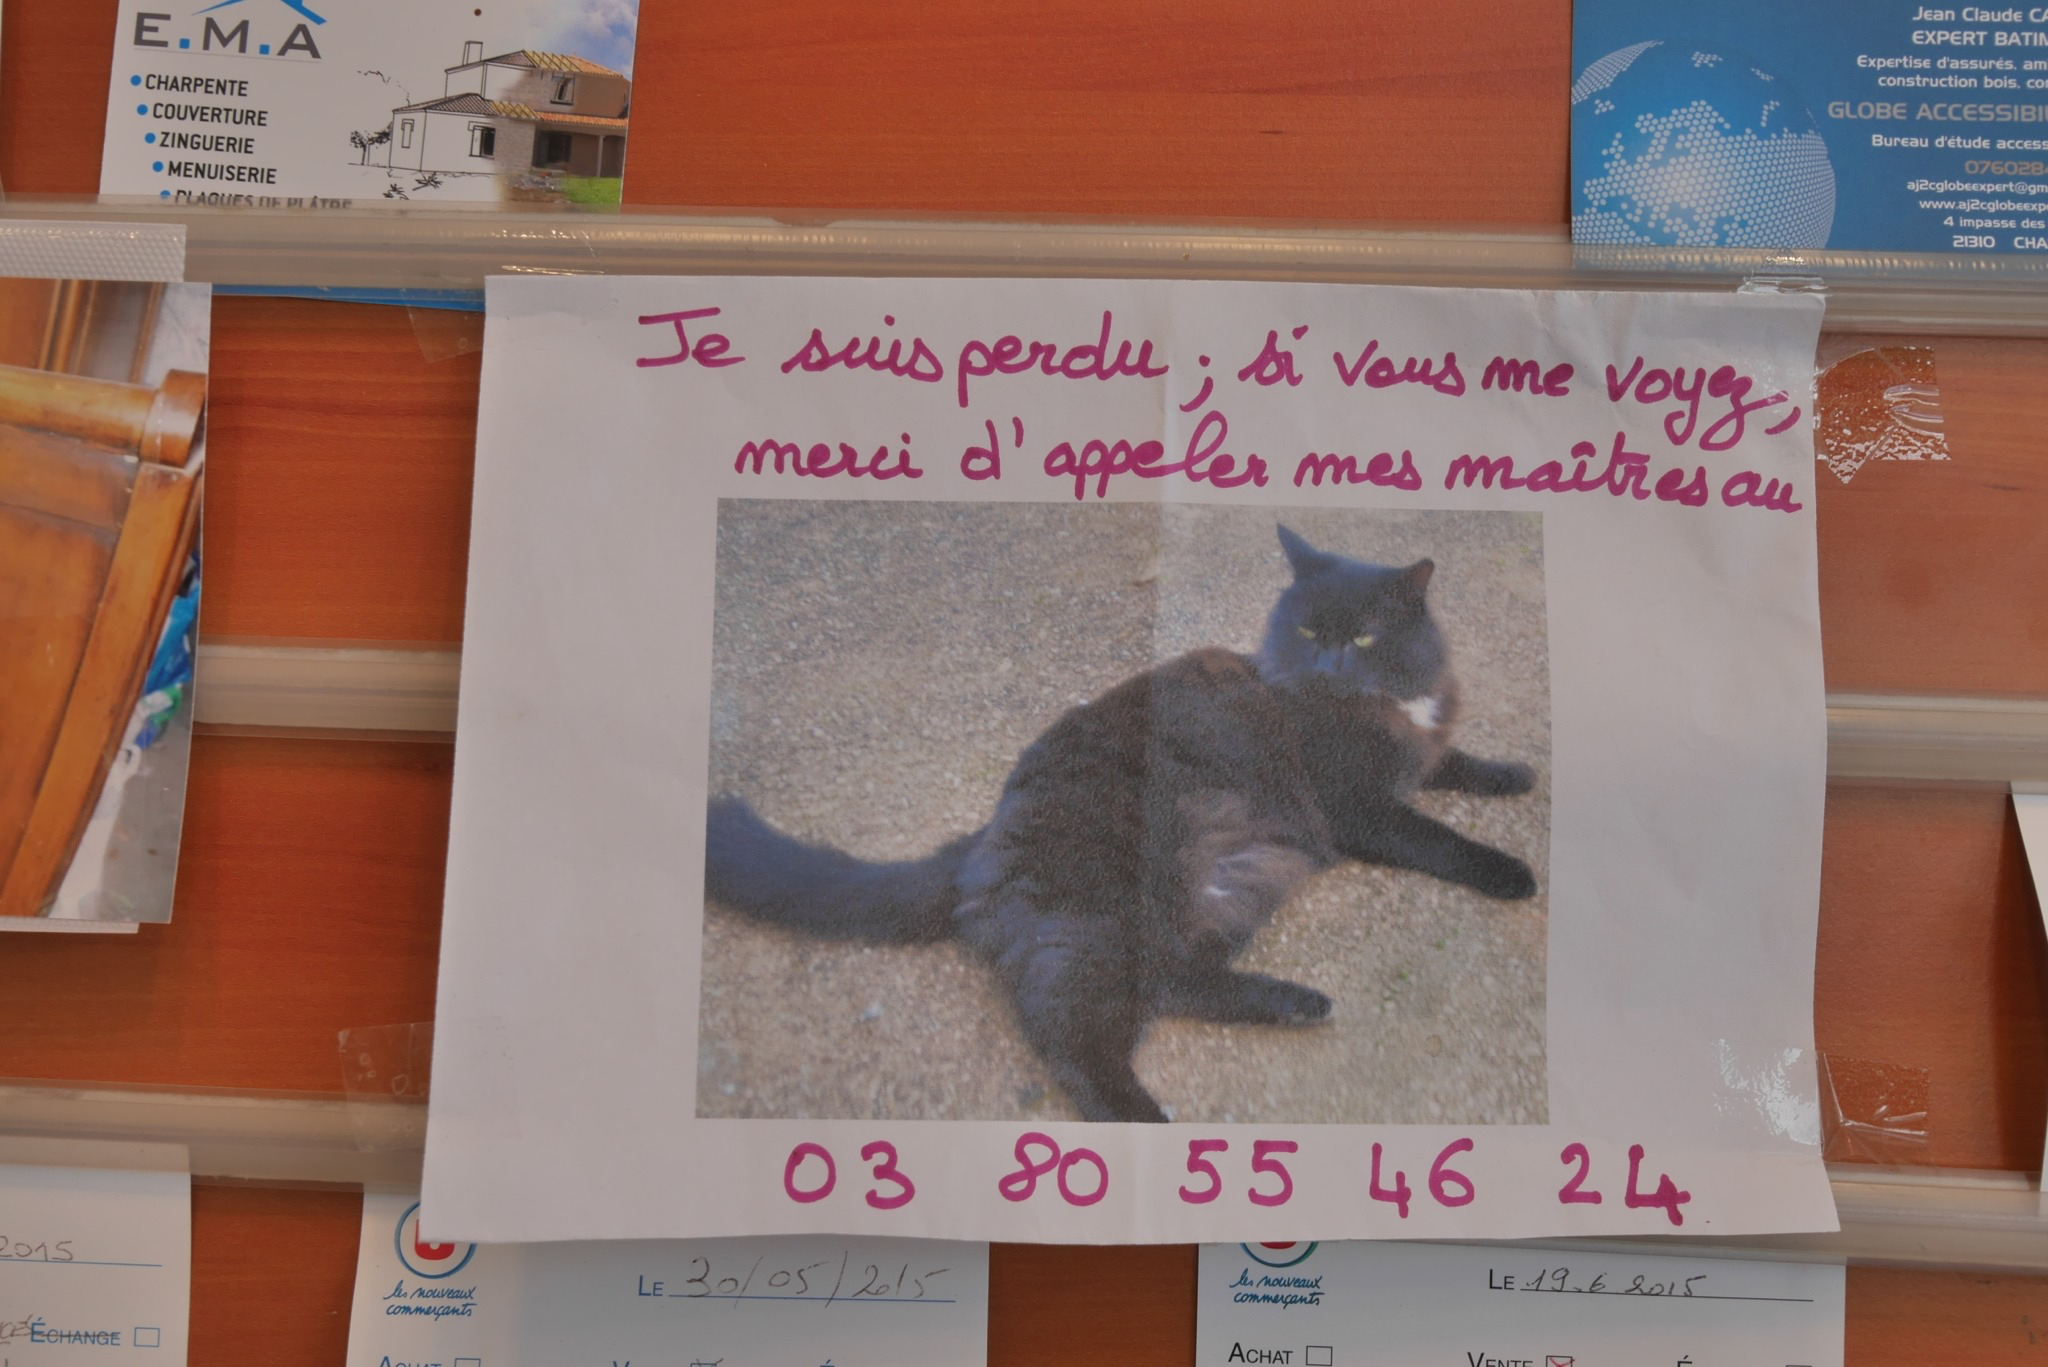 E.M.A
CHARPENTE
COUVERTURE
ZINGUERIE
MENUISERIE
PLAQUES DE PLÂTRE
Jean Claude
EXPERT
Expertise d'assurés.
construction bois,
GLOBE
Bureau d'étude
www.
4 impasse des
21310
Je suis perdu ; si vous me voyez,
merci d'appeler mes maîtres au
03 80 55 46 24
2015
ÉCHANGE
les nouveaux
commerçants
LE 30/05/2015
ACHAT
les nouveaux
commerçants
LE 19.6 2015
ACHAT
VENTE